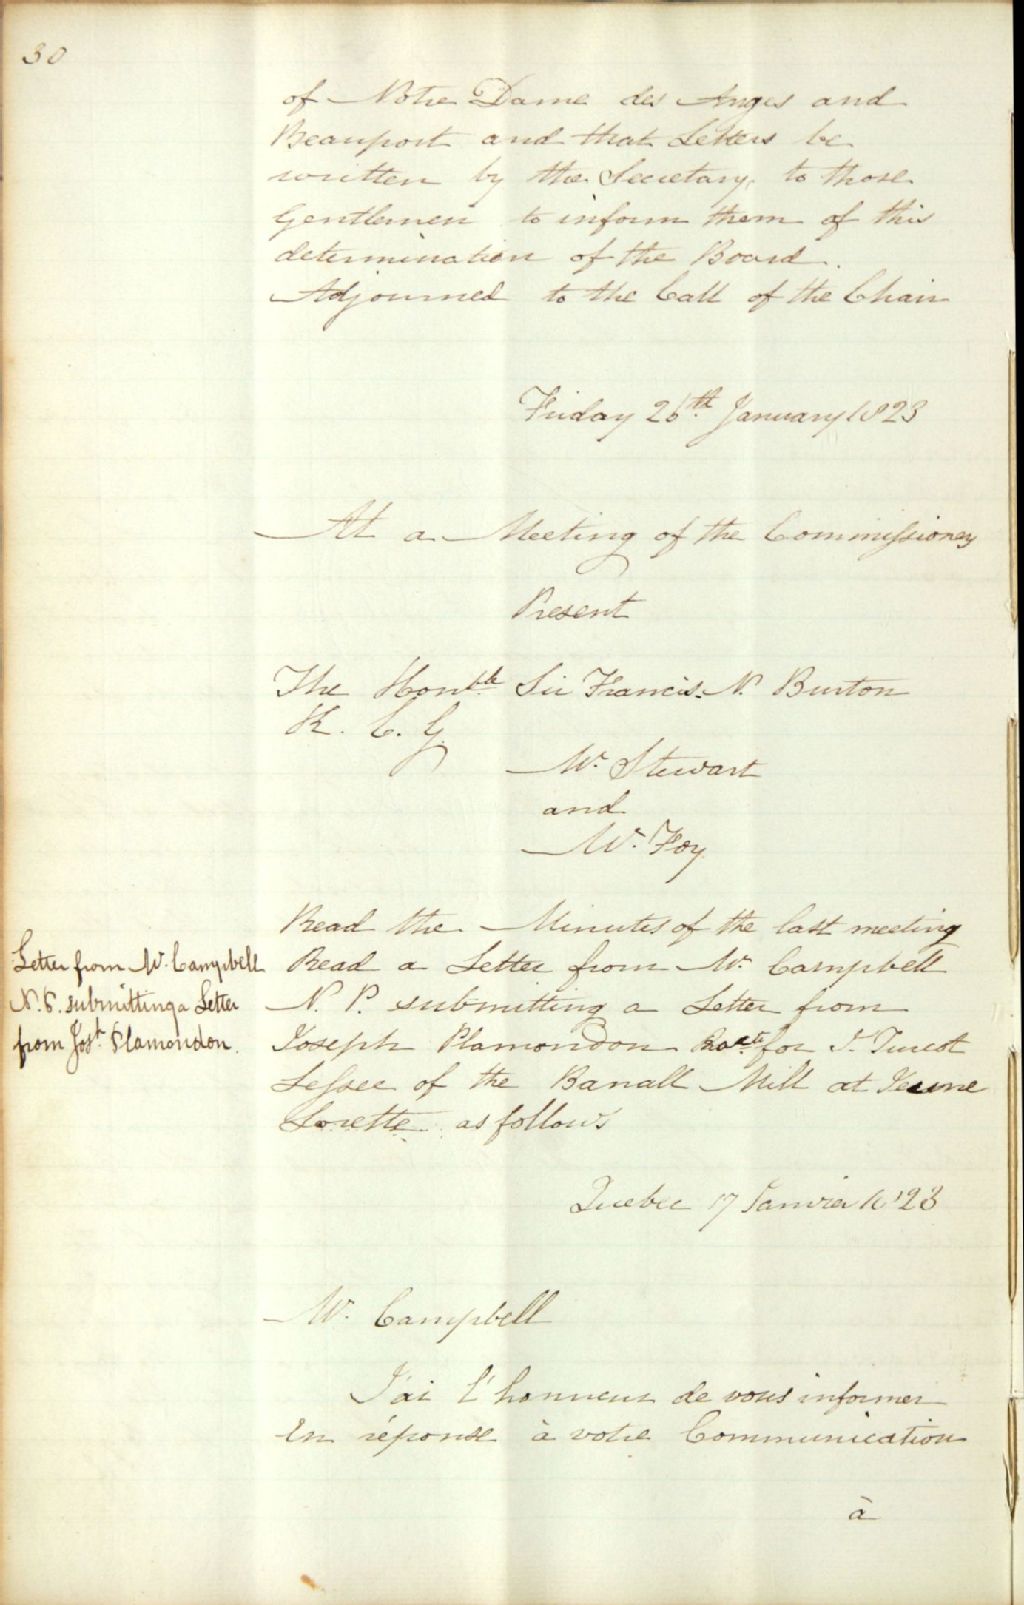 30
of Notre Dame des Anges and
Beauport and that Letters be
written by the Secretary, to those
Gentlemen to inform them of this
determination of the Board.
Adjourned to the Call of the Chair
Friday 26th January 1823
At a Meeting of the Commissioners
Present
The Honble Sir Francis. N. Burton
K. C. G.
Mr. Stewart
and
Mr. Foy
Read the Minutes of the last meeting
Letter from Mr. Campbell
N. P. submitting a Letter
from Josh. Plamondon.
Read a Letter from Mr. Campbell
N. P. submitting a Letter from
Joseph Plamondon for J. Turcot
Lessee of the Banall Mill at Jeune
Lorette as follows
Quebec 17 Janvier 1823
Mr. Campbell
J'ai l'honneur de vous informer
En réponse à votre Communication
à